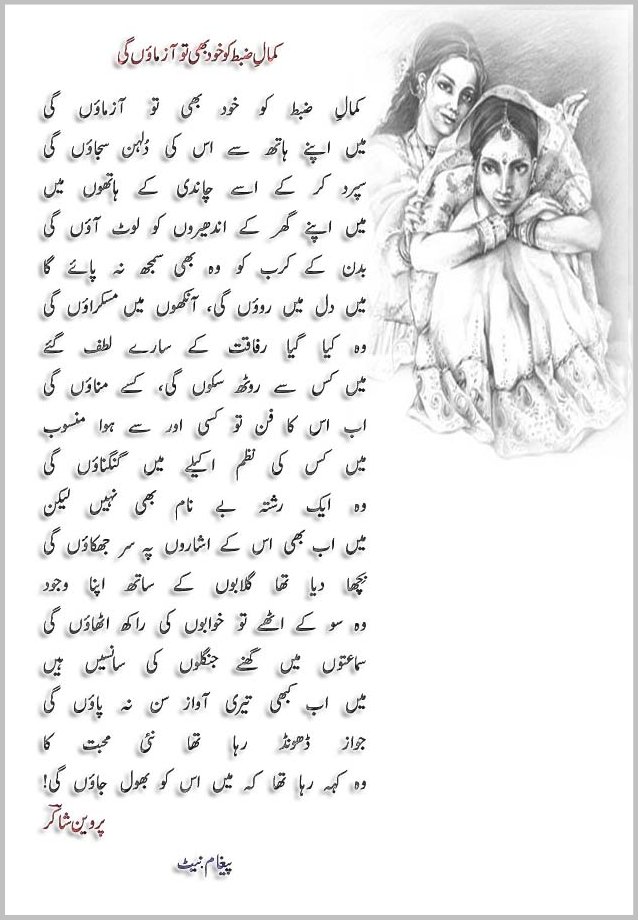 کمالِ ضبط کو خود بھی تو آزماؤں گی
کمالِ ضبط کو خود بھی تو آزماؤں گی
میں اپنے ہاتھ سے اس کی دُلہن سجاؤں گی
سپرد کر کے اسے چاندی کے ہاتھوں میں
میں اپنے گھر کے اندھیروں کو لوٹ آؤں گی
بدن کے کرب کو وہ بھی سمجھ نہ پائے گا
میں دل میں روؤں گی، آنکھوں میں مسکراؤں گی
وہ کیا گیا رفاقت کے سارے لطف گئے
میں کس سے روٹھ سکوں گی، کسے مناؤں گی
اب اس کا فن تو کسی اور سے ہوا منسوب
میں کس کی نظم اکیلے میں گنگناؤں گی
وہ ایک رشتہ بے نام بھی نہیں لیکن
میں اب بھی اس کے اشاروں پہ سر جھکاؤں گی
بچھا دیا تھا گلابوں کے ساتھ اپنا وجود
وہ سو کے اٹھے تو خوابوں کی راکھ اٹھاؤں گی
سماعتوں میں گھنے جنگلوں کی سانسیں ہیں
میں اب کبھی تیری آواز سن نہ پاؤں گی
جواز ڈھونڈ رہا تھا نئی محبت کا
وہ کہہ رہا تھا کہ میں اس کو بھول جاؤں گی!
پروین شاکر
پیغام نیٹ